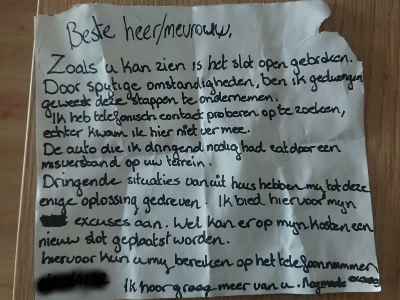 Beste heer/mevrouw,
Zoals u kan zien is het slot open gebroken.
Door spijtige omstandigheden, ben ik gedwongen
geweest deze stappen te ondernemen.
Ik heb telefonisch contact proberen op te zoeken,
echter kwam ik hier niet ver mee.
De auto die ik dringend nodig had zat door een
misverstand op uw terrein.
Dringende situaties vanuit huis hebben mij tot deze
enige oplossing gedreven. Ik bied hiervoor mijn
excuses aan. Wel kan er op mijn kosten een
nieuw slot geplaatst worden.
hiervoor kun u mij bereiken op het telefoonnummer
Ik hoor graag meer van u. Nogmaals excuses